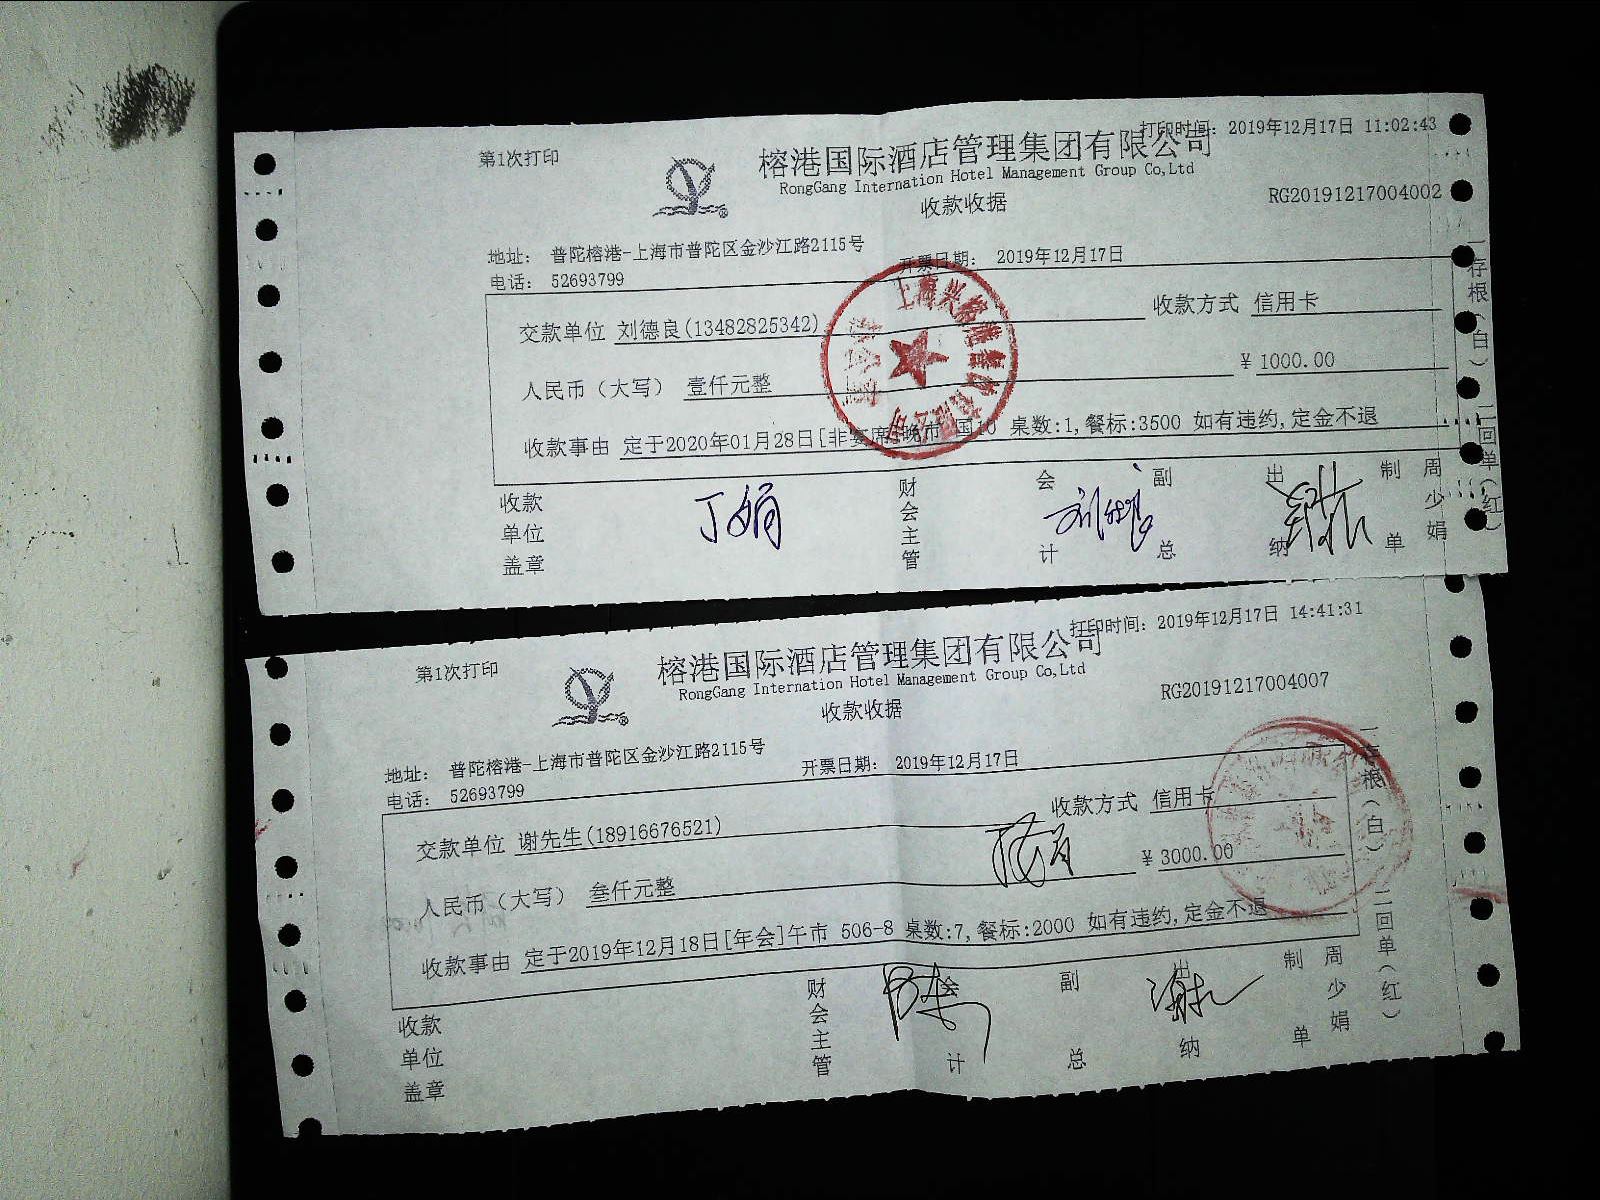 第1次打印
打印时间: 2019年12月17日 11:02:43
榕港国际酒店管理集团有限公司
RongGang Internation Hotel Management Group Co,Ltd
收款收据
RG20191217004002
地址: 普陀榕港-上海市普陀区金沙江路2115号
开票日期: 2019年12月17日
电话: 52693799
交款单位 刘德良(13482825342)
收款方式 信用卡
人民币（大写） 壹仟元整
¥ 1000.00
收款事由 定于2020年01月28日[非宴席]晚市 国10 桌数:1,餐标:3500 如有违约,定金不退
收款单位盖章
丁娟
财会主管
会计
副总
出纳
制单
周少娟
一存根（白） 二回单（红）
第1次打印
打印时间: 2019年12月17日 14:41:31
榕港国际酒店管理集团有限公司
RongGang Internation Hotel Management Group Co,Ltd
收款收据
RG20191217004007
地址: 普陀榕港-上海市普陀区金沙江路2115号
开票日期: 2019年12月17日
电话: 52693799
交款单位 谢先生(18916676521)
收款方式 信用卡
人民币（大写） 叁仟元整
¥ 3000.00
收款事由 定于2019年12月18日[年会]午市 506-8 桌数:7,餐标:2000 如有违约,定金不退
收款单位盖章
财会主管
会计
副总
出纳
制单
周少娟
一存根（白） 二回单（红）